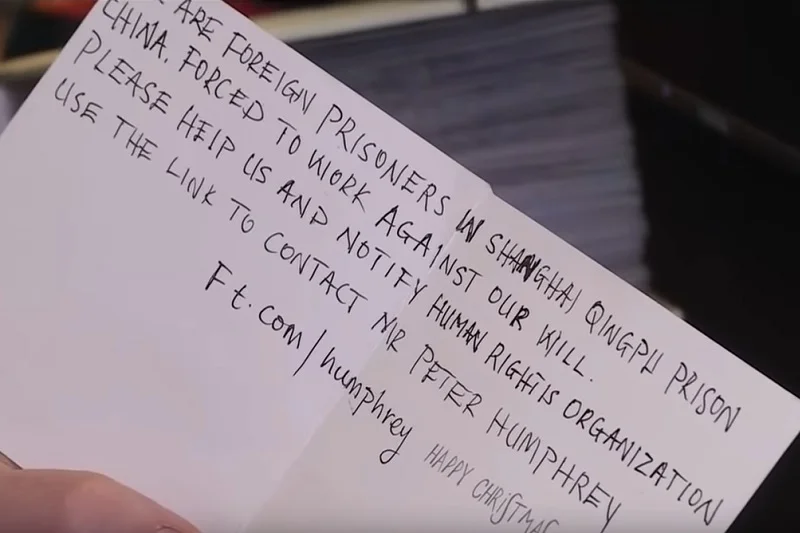 ARE FOREIGN PRISONERS IN SHANGHAI QINGPU PRISON
CHINA. FORCED TO WORK AGAINST OUR WILL.
PLEASE HELP US AND NOTIFY HUMAN RIGHTS ORGANIZATION
USE THE LINK TO CONTACT MR PETER HUMPHREY
Ft.com/humphrey
HAPPY CHRISTMAS